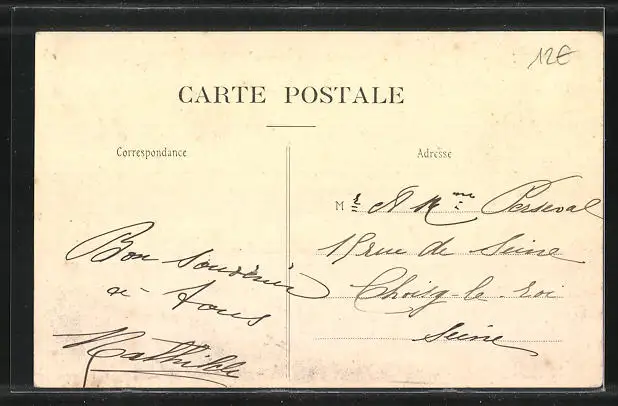 12€
CARTE POSTALE
Correspondance
Adresse
Mr & Mme Perseval
19 rue de Seine
Choisy-le-roi
Seine
Bon souvenir
à tous
Mathilde